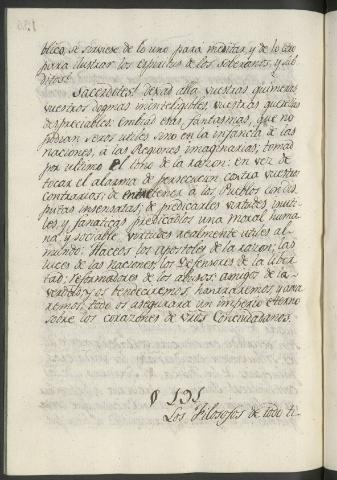 blico, se sirviese de lo uno para meditar, y de lo otro
para ilustrar los espiritus de los soberanos, y sub-
ditos?
Sacerdotes! dexad allá vuestras quimeras
vuestros dogmas ininteligibles, vuestras querellas
despreciables: embiad esas fantasmas, que no
podian seros utiles sino en la infancia de las
naciones, à las Regiones imaginarias; tomad
por ultimo el tono de la razon: en vez de
tocar el alarma de persecucion contra vuestros
contrarios; de entretener à los Pueblos con dis-
putas insensatas; de predicarles virtudes inuti-
les y fanaticas, predicadles una moral huma-
na, y sociable, virtudes realmente utiles al
mundo: Haceos los apostoles de la razon; las
luces de las Naciones, los Defensores de la liber-
tad; reformadores de los abusos; amigos de la
verdad, y os bendeciremos, honraremos, y ama-
remos; todo os asegurará un imperio eterno
sobre los corazones de v.tros Conciudadanos.
§ 191
Los Filosofos de todo ti-